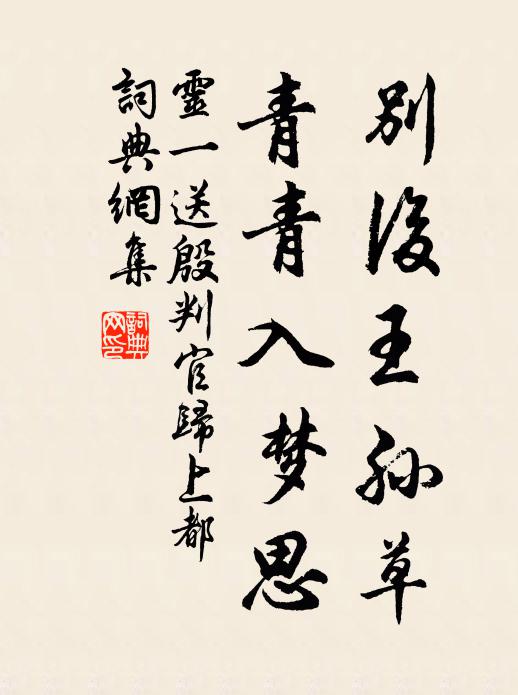 別後王孫草
青青入梦思
靈一送殷判官歸上都
詞典網集
詞典
网印